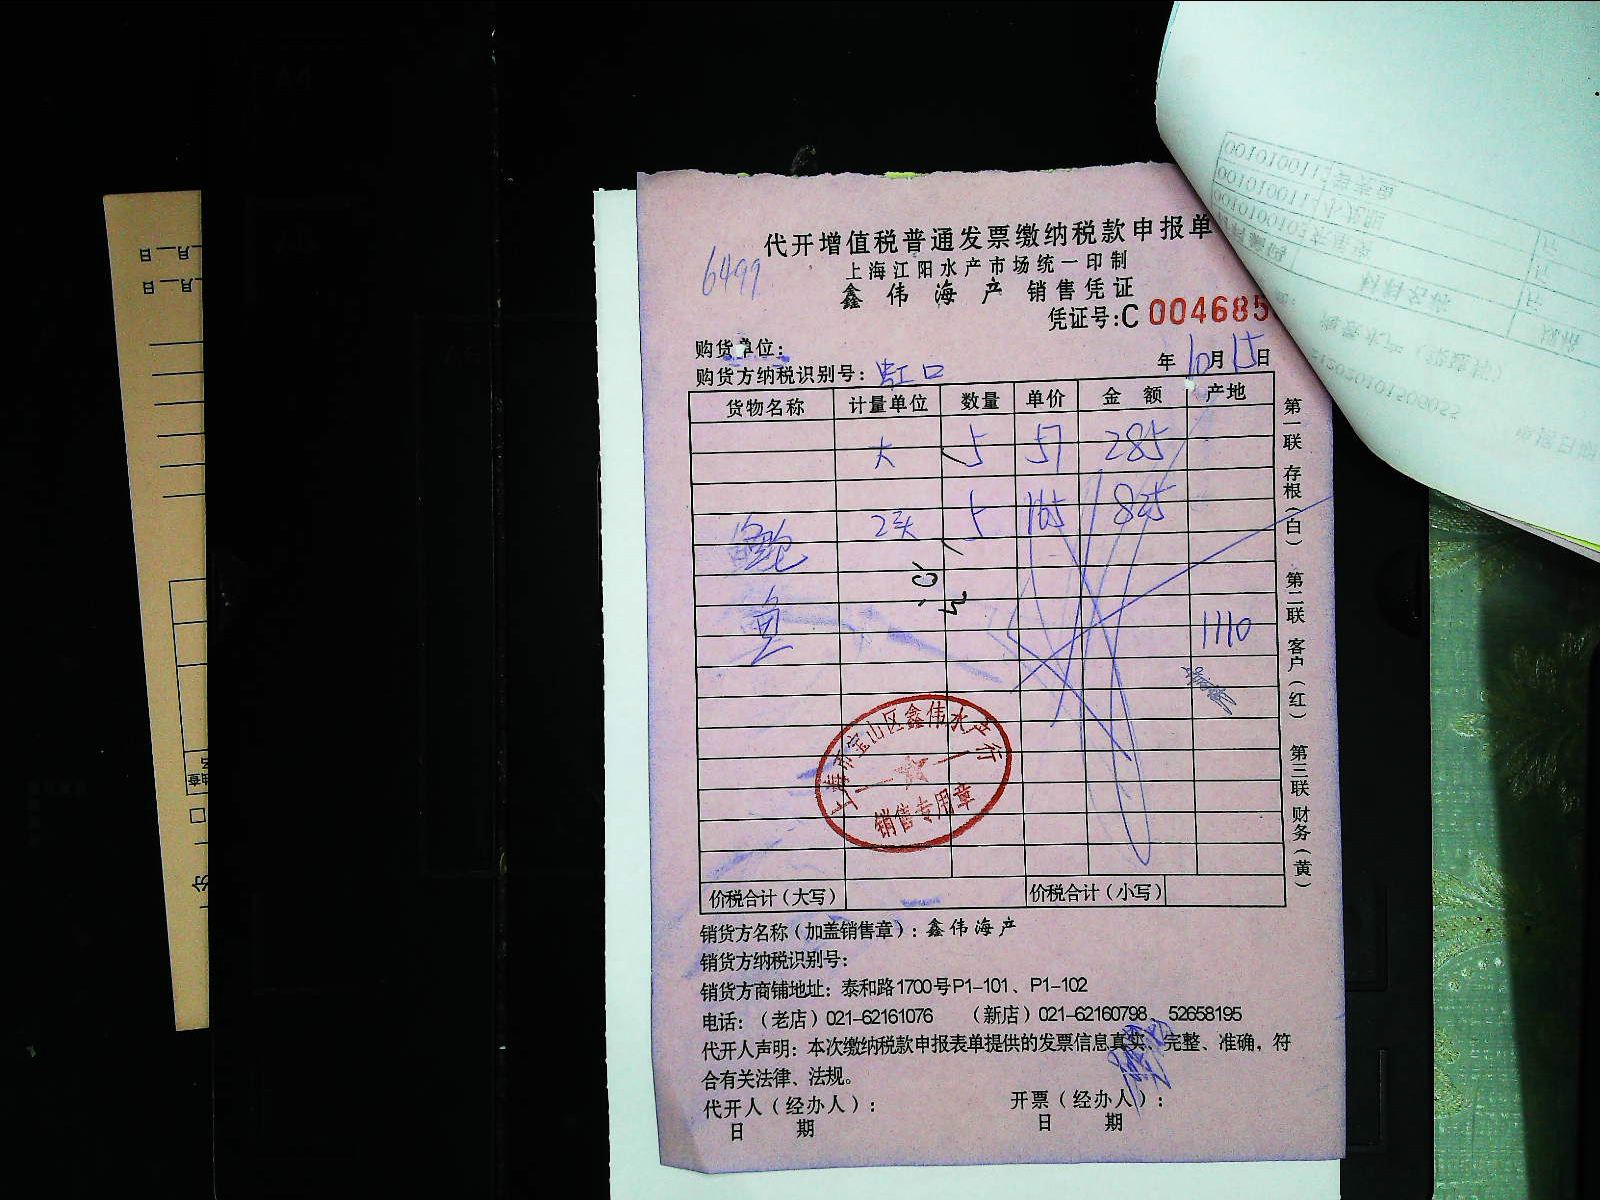 代开增值税普通发票缴纳税款申报单
6499
上海江阳水产市场统一印制
鑫伟海产 销售凭证
凭证号:C 004685
购货单位:
年10月15日
购货方纳税识别号: 虹口
货物名称 计量单位 数量 单价 金额 产地
大 5 57 285
2头 5 165 825
鲍
鱼
1110
上海市宝山区鑫伟水产行
销售专用章
价税合计(大写) 价税合计(小写)
第一联 存根(白) 第二联 客户(红) 第三联 财务(黄)
销货方名称(加盖销售章): 鑫伟海产
销货方纳税识别号:
销货方商铺地址: 泰和路1700号P1-101、P1-102
电话:(老店)021-62161076 (新店)021-62160798、52658195
代开人声明: 本次缴纳税款申报表单提供的发票信息真实、完整、准确,符
合有关法律、法规。
代开人(经办人): 开票(经办人):
日 期 日 期